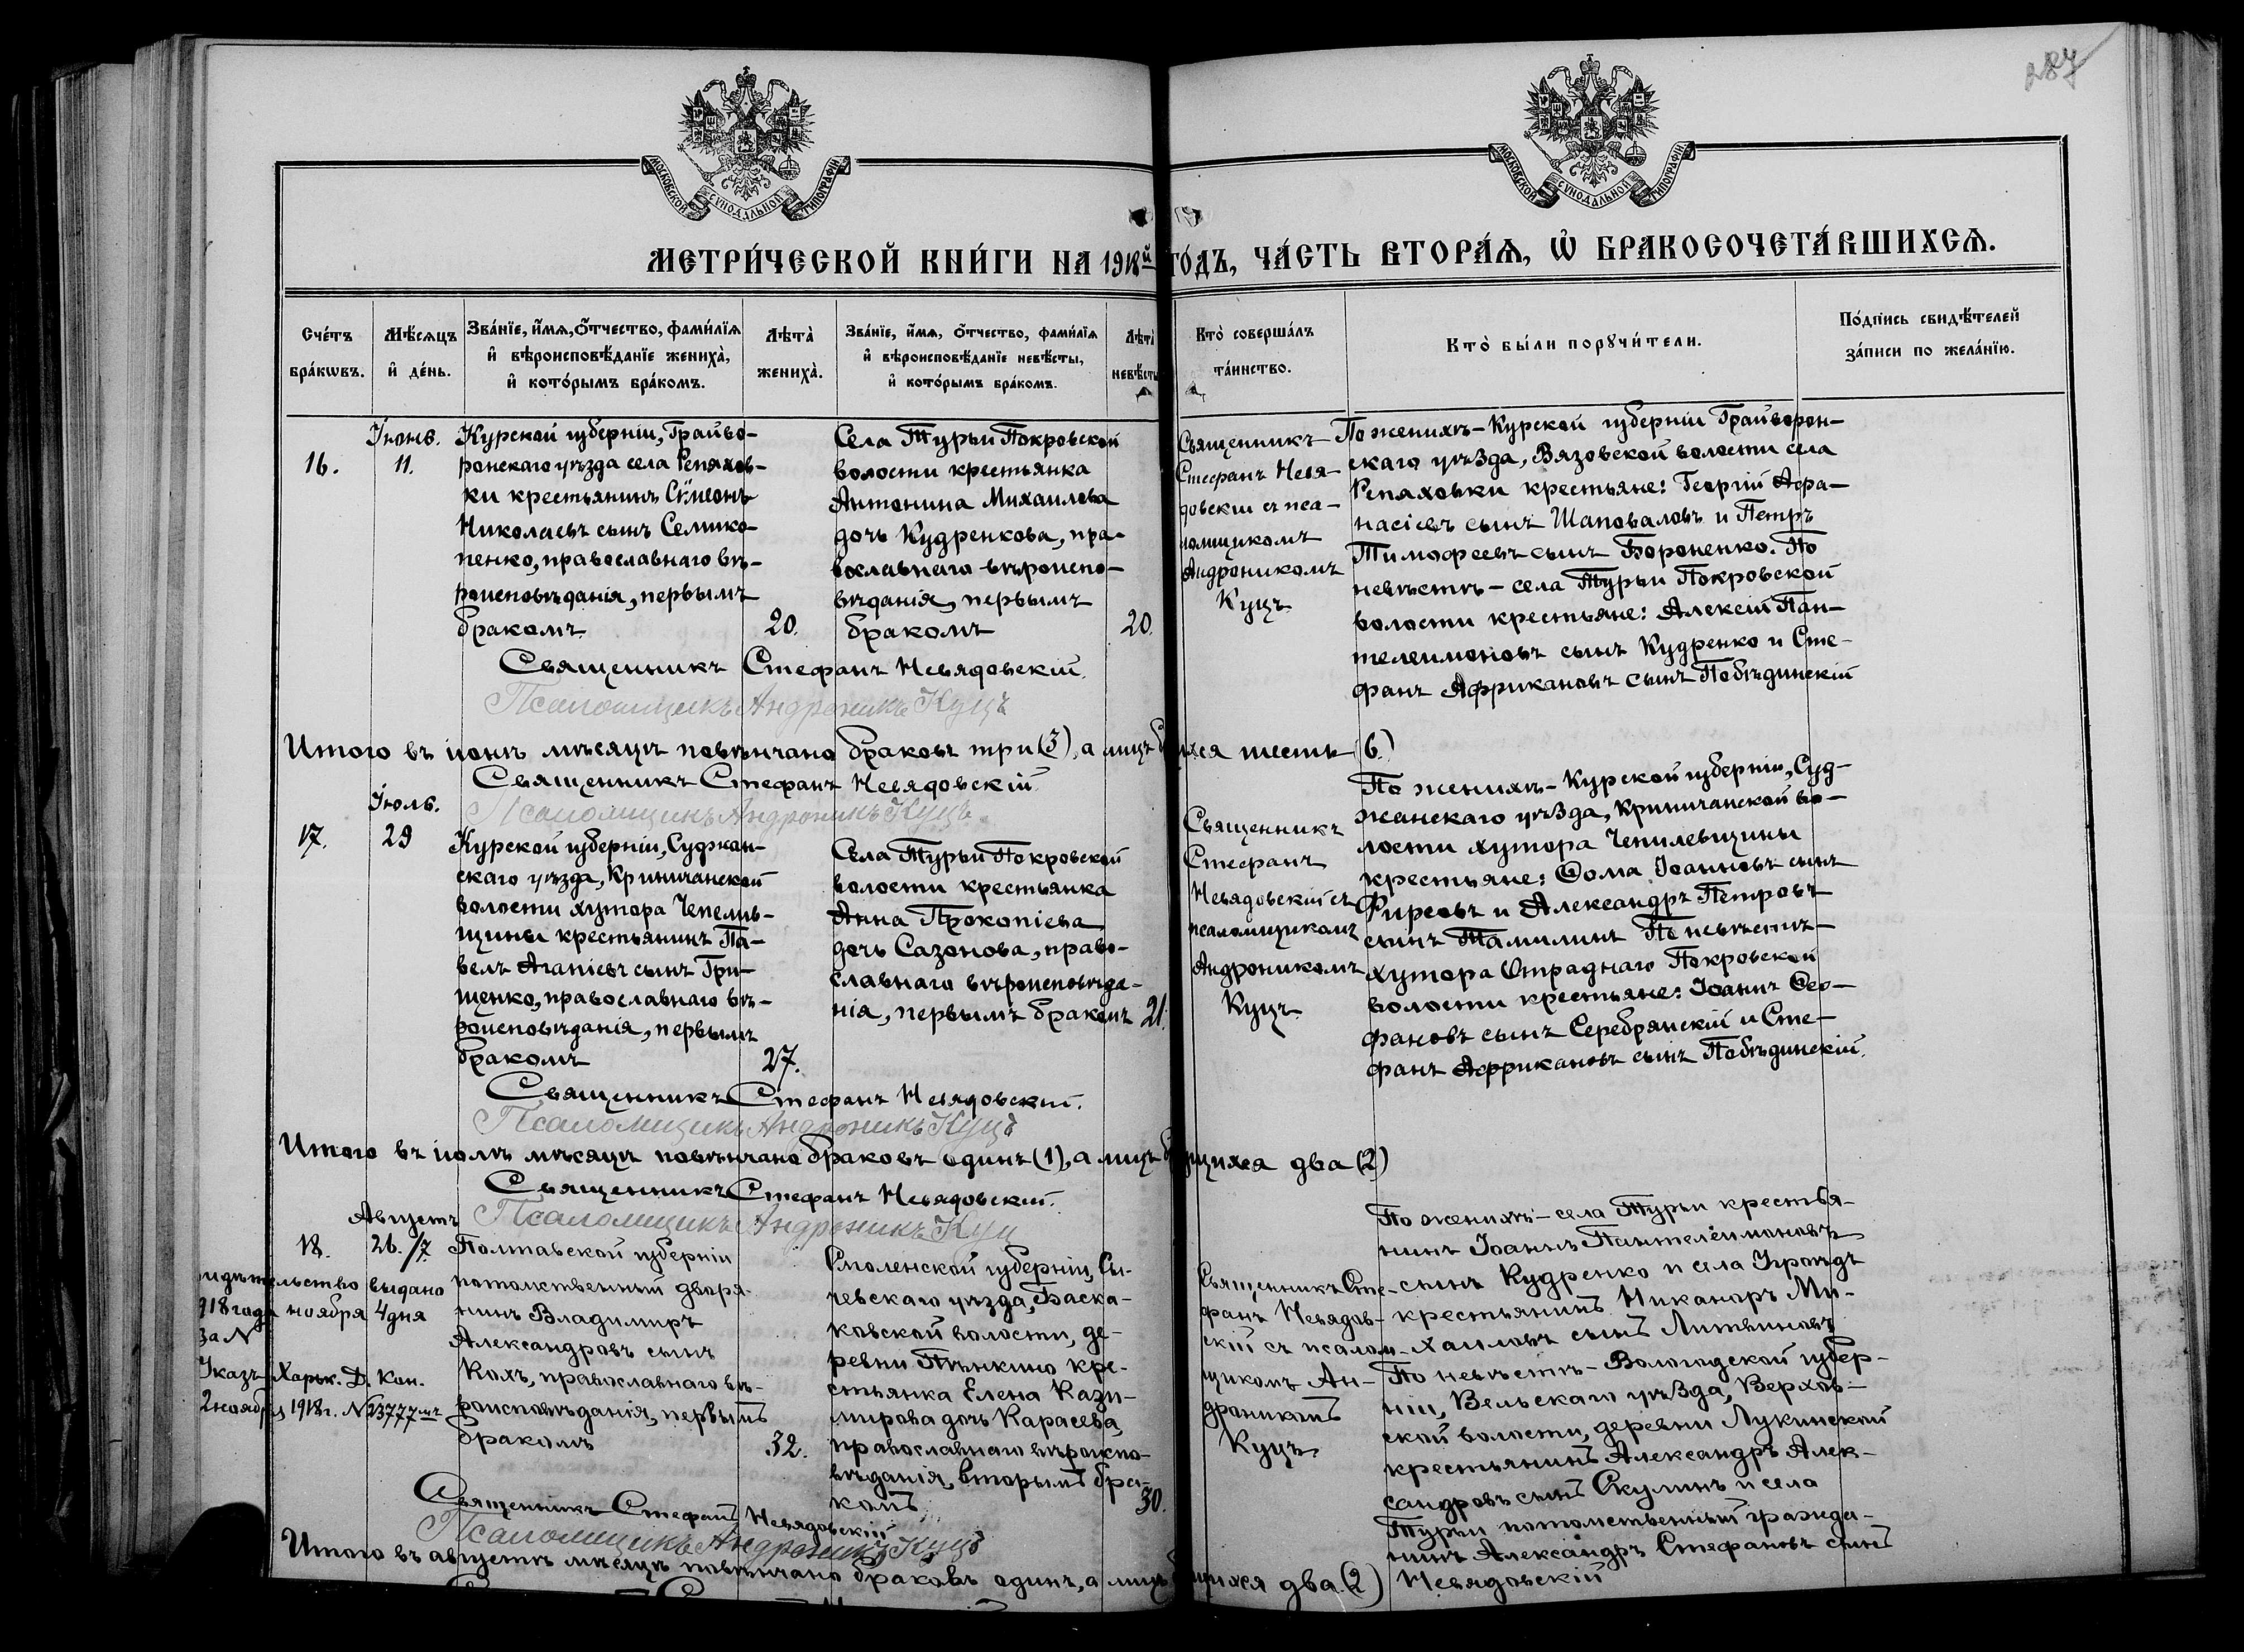 287
МОСКОВСКОЙ СѴНОДАЛЬНОЙ ТИПОГРАФІИ
МОСКОВСКОЙ СѴНОДАЛЬНОЙ ТИПОГРАФІИ
МЕТРИ́ЧЕСКОЙ КНИ́ГИ НА 1918й ГО́ДЪ, ЧА́СТЬ ВТОРА́Ѧ, Ѽ БРАКОСОЧЕТА́ВШИХСѦ.
Сче́тъ
бра́кѡвъ.
Мѣ́сѧцъ
и҆ де́нь.
Зва́нїе, и҆́мѧ, ѻ҆́тчество, фами́лїѧ
и҆ вѣроисповѣ́данїе жениха̀,
и҆ кото́рымъ бра́комъ.
Лѣта̀
жениха̀.
Зва́нїе, и҆́мѧ, ѻ҆́тчество, фами́лїѧ
и҆ вѣроисповѣ́данїе невѣ́сты,
и҆ кото́рымъ бра́комъ.
Лѣта̀
невѣ́сты
Кто̀ соверша́лъ
та́инство.
Кто̀ бы́ли порꙋчи́тели.
По́дпись свидѣ́телей
за́писи по жела́нїю.
16.
Іюнь.
11.
Курской губерніи, Грайво-
ронскаго уѣзда села Репяхов-
ки крестьянинъ Сѵмеонъ
Николаевъ сынъ Семико-
пенко, православнаго вѣ-
роисповѣданія, первымъ
бракомъ
20.
Села Турьи Покровской
волости крестьянка
Антонина Михаилова
дочь Кудренкова, пра-
вославнаго вѣроиспо-
вѣданія, первымъ
бракомъ
20.
Священникъ
Стефанъ Невя-
довскій съ пса-
ломщикомъ
Андроникомъ
Куцъ
По женихѣ - Курской губерніи Грайворон-
скаго уѣзда, Вязовской волости села
Репяховки крестьяне: Георгій Афа-
насіевъ сынъ Шаповаловъ и Петръ
Тимофеевъ сынъ Бороненко. По
невѣстѣ - села Турьи Покровской
волости крестьяне: Алексій Пан-
телеимоновъ сынъ Кудренко и Сте-
фанъ Африкановъ сынъ Побѣдинскій
Священникъ Стефанъ Невядовскій.
Псаломщикъ Андроникъ Куцъ
Итого въ іюнѣ мѣсяцѣ повѣнчано браковъ три (3), а лицъ шесть (6.)
Священникъ Стефанъ Невядовскій.
Псаломщикъ Андроникъ Куцъ
17.
Іюль.
29
Курской губерніи, Суджан-
скаго уѣзда, Криничанской
волости хутора Чепелив-
щины крестьянинъ Па-
велъ Агапіевъ сынъ Гри-
щенко, православнаго вѣ-
роисповѣданія, первымъ
бракомъ
27.
Села Турьи Покровской
волости крестьянка
Анна Прокопіева
дочь Сазонова, право-
славнаго вѣроисповѣда-
нія, первымъ бракомъ
21.
Священникъ
Стефанъ
Невядовскій съ
псаломщикомъ
Андроникомъ
Куцъ
По женихѣ - Курской губерніи, Суд-
жанскаго уѣзда, Криничанской во-
лости хутора Чепилевщины
крестьяне: Ѳома Іоанновъ сынъ
Фирсовъ и Александръ Петровъ
сынъ Тамилинъ По невѣстѣ -
хутора Отраднаго Покровской
волости крестьяне: Іоаннъ Ѳео-
фановъ сынъ Серебрянскій и Сте-
фанъ Африкановъ сынъ Побѣдинскій.
Священникъ Стефанъ Невядовскій.
Псаломщикъ Андроникъ Куцъ
Итого въ іюлѣ мѣсяцѣ повѣнчано браковъ одинъ (1), а лицъ два (2)
Священникъ Стефанъ Невядовскій.
Псаломщикъ Андроникъ Куц
18.
Августъ
26./7.
видѣтельство выдано
918 года ноября 4 дня
За №
Указъ Харьк. Д. Кон.
2 ноября 1918 г. № 23777
Полтавской губерніи
потомственный дворя-
нинъ Владимиръ
Александровъ сынъ
Кохъ, православнаго вѣ-
роисповѣданія, первымъ
бракомъ
32.
Смоленской губерніи, Сы-
чевскаго уѣзда, Баска-
ковской волости, де-
ревни Пѣнкино кре-
стьянка Елена Кази-
мирова дочь Карасева,
православнаго вѣроиспо-
вѣданія, вторымъ бра-
комъ
30.
Священникъ Сте-
фанъ Невядов-
скій съ псалом-
щикомъ Ан-
дроникомъ
Куцъ
По женихѣ - села Турьи крестья-
нинъ Іоаннъ Пантелеимоновъ
сынъ Кудренко и села Уроидѣ
крестьянинъ Никаноръ Ми-
хаиловъ сынъ Литвиновъ
По невѣстѣ - Вологодской губер-
ніи, Вельскаго уѣзда, Верхов-
ской волости, деревни Лукинской
крестьянинъ Александръ Алек-
сандровъ сынъ Скулинъ и села
Турьи потомственный гражда-
нинъ Александръ Стефановъ сынъ
Невядовскій
Священникъ Стефанъ Невядовскій
Псаломщикъ Андроникъ Куцъ
Итого въ августѣ мѣсяцѣ повѣнчано браковъ одинъ, а лицъ два (2)